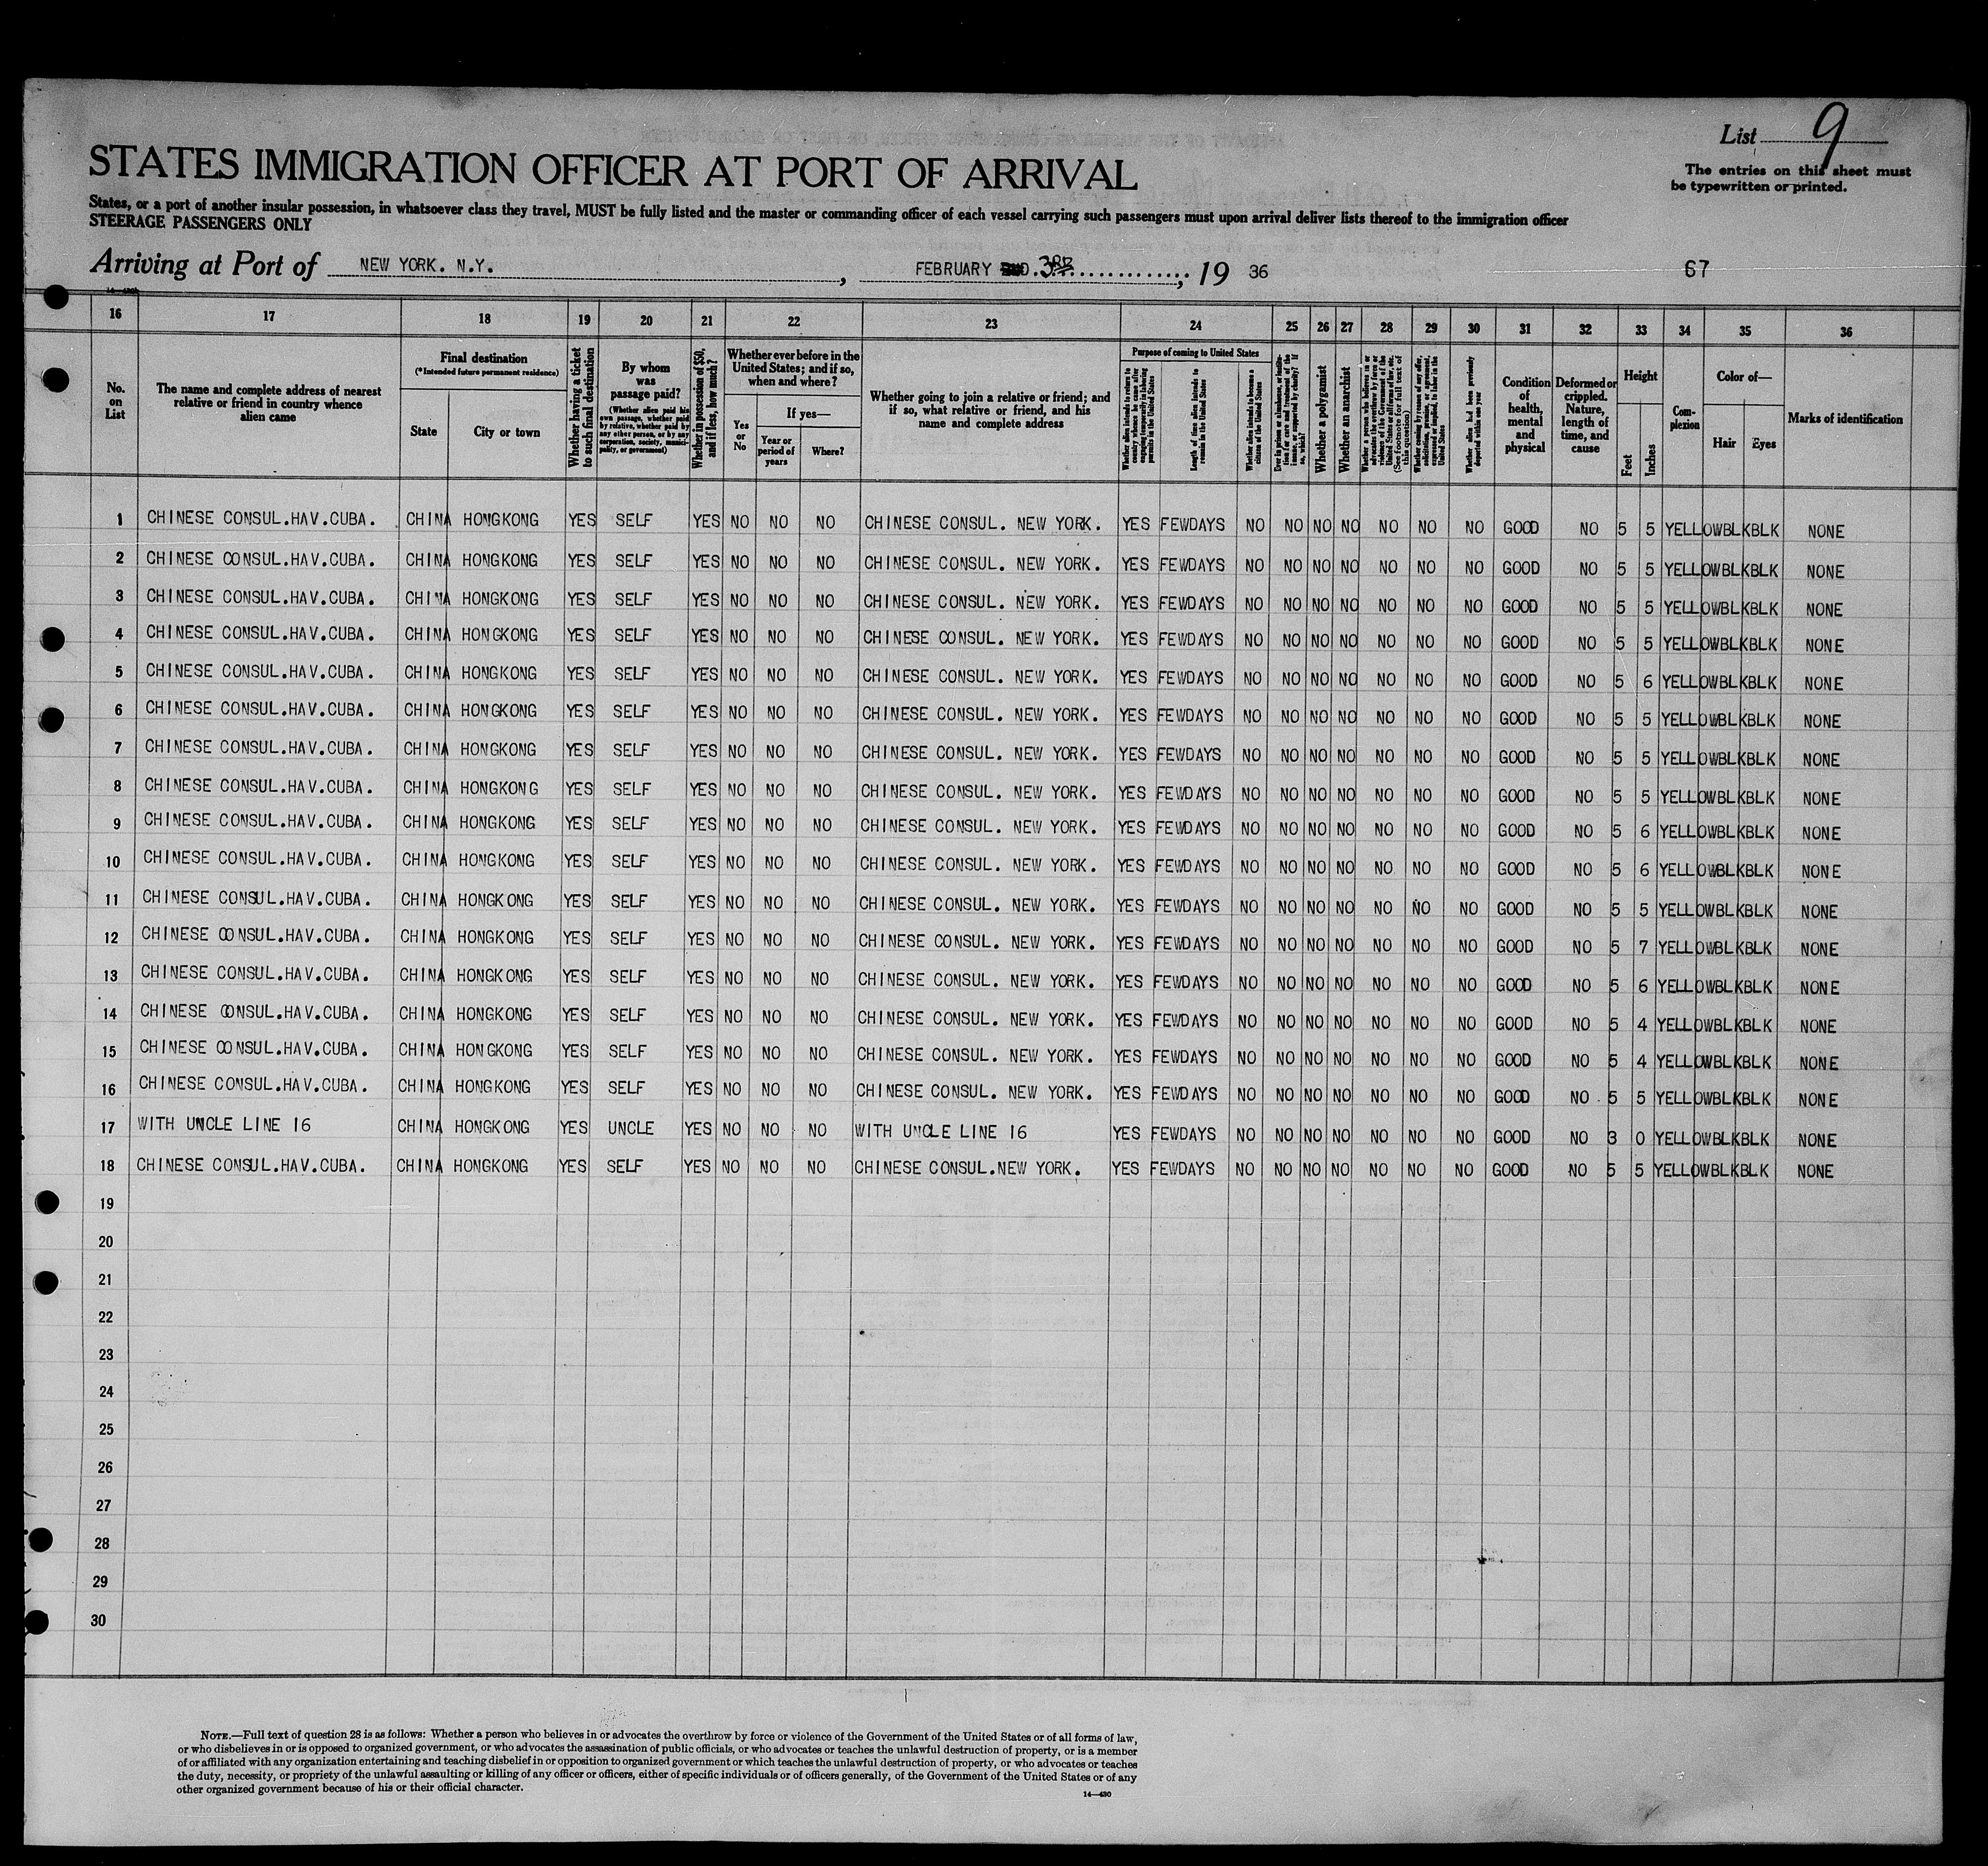 List 9
The entries on this sheet must
be typewritten or printed.
STATES IMMIGRATION OFFICER AT PORT OF ARRIVAL
States, or a port of another insular possession, in whatsoever class they travel, MUST be fully listed and the master or commanding officer of each vessel carrying such passengers must upon arrival deliver lists thereof to the immigration officer
STEERAGE PASSENGERS ONLY
Arriving at Port of NEW YORK. N.Y. , FEBRUARY 3RD , 19 36 67
16 17 18 19 20 21 22 23 24 25 26 27 28 29 30 31 32 33 34 35 36
No. on List
The name and complete address of nearest relative or friend in country whence alien came
Final destination
(*Intended future permanent residence)
State
City or town
Whether having a ticket to such final destination
By whom was passage paid?
(Whether alien paid his own passage, whether paid by relative, whether paid by any other person, or by any corporation, society, municipality, or government)
Whether in possession of $50, and if less, how much?
Whether ever before in the United States; and if so, when and where?
Yes or No
If yes—
Year or period of years
Where?
Whether going to join a relative or friend; and if so, what relative or friend, and his name and complete address
Purpose of coming to United States
Whether alien intends to return to country whence he came after engaging temporarily in laboring pursuits in the United States
Length of time alien intends to remain in the United States
Whether alien intends to become a citizen of the United States
Ever in prison or almshouse, or institution for care and treatment of the insane, or supported by charity? If so, which?
Whether a polygamist
Whether an anarchist
Whether a person who believes in or advocates the overthrow by force or violence of the Government of the United States or all forms of law, etc. (See footnote for full text of this question)
Whether coming by reason of any offer, solicitation, promise, or agreement, expressed or implied, to labor in the United States
Whether alien had been previously deported within one year
Condition of health, mental and physical
Deformed or crippled. Nature, length of time, and cause
Height
Feet
Inches
Com-plexion
Color of—
Hair
Eyes
Marks of identification
1 CHINESE CONSUL.HAV.CUBA. CHINA HONGKONG YES SELF YES NO NO NO CHINESE CONSUL. NEW YORK. YES FEWDAYS NO NO NO NO NO NO NO GOOD NO 5 5 YELLOWBLKBLK NONE
2 CHINESE CONSUL.HAV.CUBA. CHINA HONGKONG YES SELF YES NO NO NO CHINESE CONSUL. NEW YORK. YES FEWDAYS NO NO NO NO NO NO NO GOOD NO 5 5 YELLOWBLKBLK NONE
3 CHINESE CONSUL.HAV.CUBA. CHINA HONGKONG YES SELF YES NO NO NO CHINESE CONSUL. NEW YORK. YES FEWDAYS NO NO NO NO NO NO NO GOOD NO 5 5 YELLOWBLKBLK NONE
4 CHINESE CONSUL.HAV.CUBA. CHINA HONGKONG YES SELF YES NO NO NO CHINESE CONSUL. NEW YORK. YES FEWDAYS NO NO NO NO NO NO NO GOOD NO 5 5 YELLOWBLKBLK NONE
5 CHINESE CONSUL.HAV.CUBA. CHINA HONGKONG YES SELF YES NO NO NO CHINESE CONSUL. NEW YORK. YES FEWDAYS NO NO NO NO NO NO NO GOOD NO 5 6 YELLOWBLKBLK NONE
6 CHINESE CONSUL.HAV.CUBA. CHINA HONGKONG YES SELF YES NO NO NO CHINESE CONSUL. NEW YORK. YES FEWDAYS NO NO NO NO NO NO NO GOOD NO 5 5 YELLOWBLKBLK NONE
7 CHINESE CONSUL.HAV.CUBA. CHINA HONGKONG YES SELF YES NO NO NO CHINESE CONSUL. NEW YORK. YES FEWDAYS NO NO NO NO NO NO NO GOOD NO 5 5 YELLOWBLKBLK NONE
8 CHINESE CONSUL.HAV.CUBA. CHINA HONGKONG YES SELF YES NO NO NO CHINESE CONSUL. NEW YORK. YES FEWDAYS NO NO NO NO NO NO NO GOOD NO 5 5 YELLOWBLKBLK NONE
9 CHINESE CONSUL.HAV.CUBA. CHINA HONGKONG YES SELF YES NO NO NO CHINESE CONSUL. NEW YORK. YES FEWDAYS NO NO NO NO NO NO NO GOOD NO 5 6 YELLOWBLKBLK NONE
10 CHINESE CONSUL.HAV.CUBA. CHINA HONGKONG YES SELF YES NO NO NO CHINESE CONSUL. NEW YORK. YES FEWDAYS NO NO NO NO NO NO NO GOOD NO 5 6 YELLOWBLKBLK NONE
11 CHINESE CONSUL.HAV.CUBA. CHINA HONGKONG YES SELF YES NO NO NO CHINESE CONSUL. NEW YORK. YES FEWDAYS NO NO NO NO NO NO NO GOOD NO 5 5 YELLOWBLKBLK NONE
12 CHINESE CONSUL.HAV.CUBA. CHINA HONGKONG YES SELF YES NO NO NO CHINESE CONSUL. NEW YORK. YES FEWDAYS NO NO NO NO NO NO NO GOOD NO 5 7 YELLOWBLKBLK NONE
13 CHINESE CONSUL.HAV.CUBA. CHINA HONGKONG YES SELF YES NO NO NO CHINESE CONSUL. NEW YORK. YES FEWDAYS NO NO NO NO NO NO NO GOOD NO 5 6 YELLOWBLKBLK NONE
14 CHINESE CONSUL.HAV.CUBA. CHINA HONGKONG YES SELF YES NO NO NO CHINESE CONSUL. NEW YORK. YES FEWDAYS NO NO NO NO NO NO NO GOOD NO 5 4 YELLOWBLKBLK NONE
15 CHINESE CONSUL.HAV.CUBA. CHINA HONGKONG YES SELF YES NO NO NO CHINESE CONSUL. NEW YORK. YES FEWDAYS NO NO NO NO NO NO NO GOOD NO 5 4 YELLOWBLKBLK NONE
16 CHINESE CONSUL.HAV.CUBA. CHINA HONGKONG YES SELF YES NO NO NO CHINESE CONSUL. NEW YORK. YES FEWDAYS NO NO NO NO NO NO NO GOOD NO 5 5 YELLOWBLKBLK NONE
17 WITH UNCLE LINE 16 CHINA HONGKONG YES UNCLE YES NO NO NO WITH UNCLE LINE 16 YES FEWDAYS NO NO NO NO NO NO NO GOOD NO 3 0 YELLOWBLKBLK NONE
18 CHINESE CONSUL.HAV.CUBA. CHINA HONGKONG YES SELF YES NO NO NO CHINESE CONSUL.NEW YORK. YES FEWDAYS NO NO NO NO NO NO NO GOOD NO 5 5 YELLOWBLKBLK NONE
19
20
21
22
23
24
25
26
27
28
29
30
NOTE.—Full text of question 28 is as follows: Whether a person who believes in or advocates the overthrow by force or violence of the Government of the United States or of all forms of law,
or who disbelieves in or is opposed to organized government, or who advocates the assassination of public officials, or who advocates or teaches the unlawful destruction of property, or is a member
of or affiliated with any organization entertaining and teaching disbelief in or opposition to organized government or which teaches the unlawful destruction of property, or who advocates or teaches
the duty, necessity, or propriety of the unlawful assaulting or killing of any officer or officers, either of specific individuals or of officers generally, of the Government of the United States or of any
other organized government because of his or their official character.
14—430